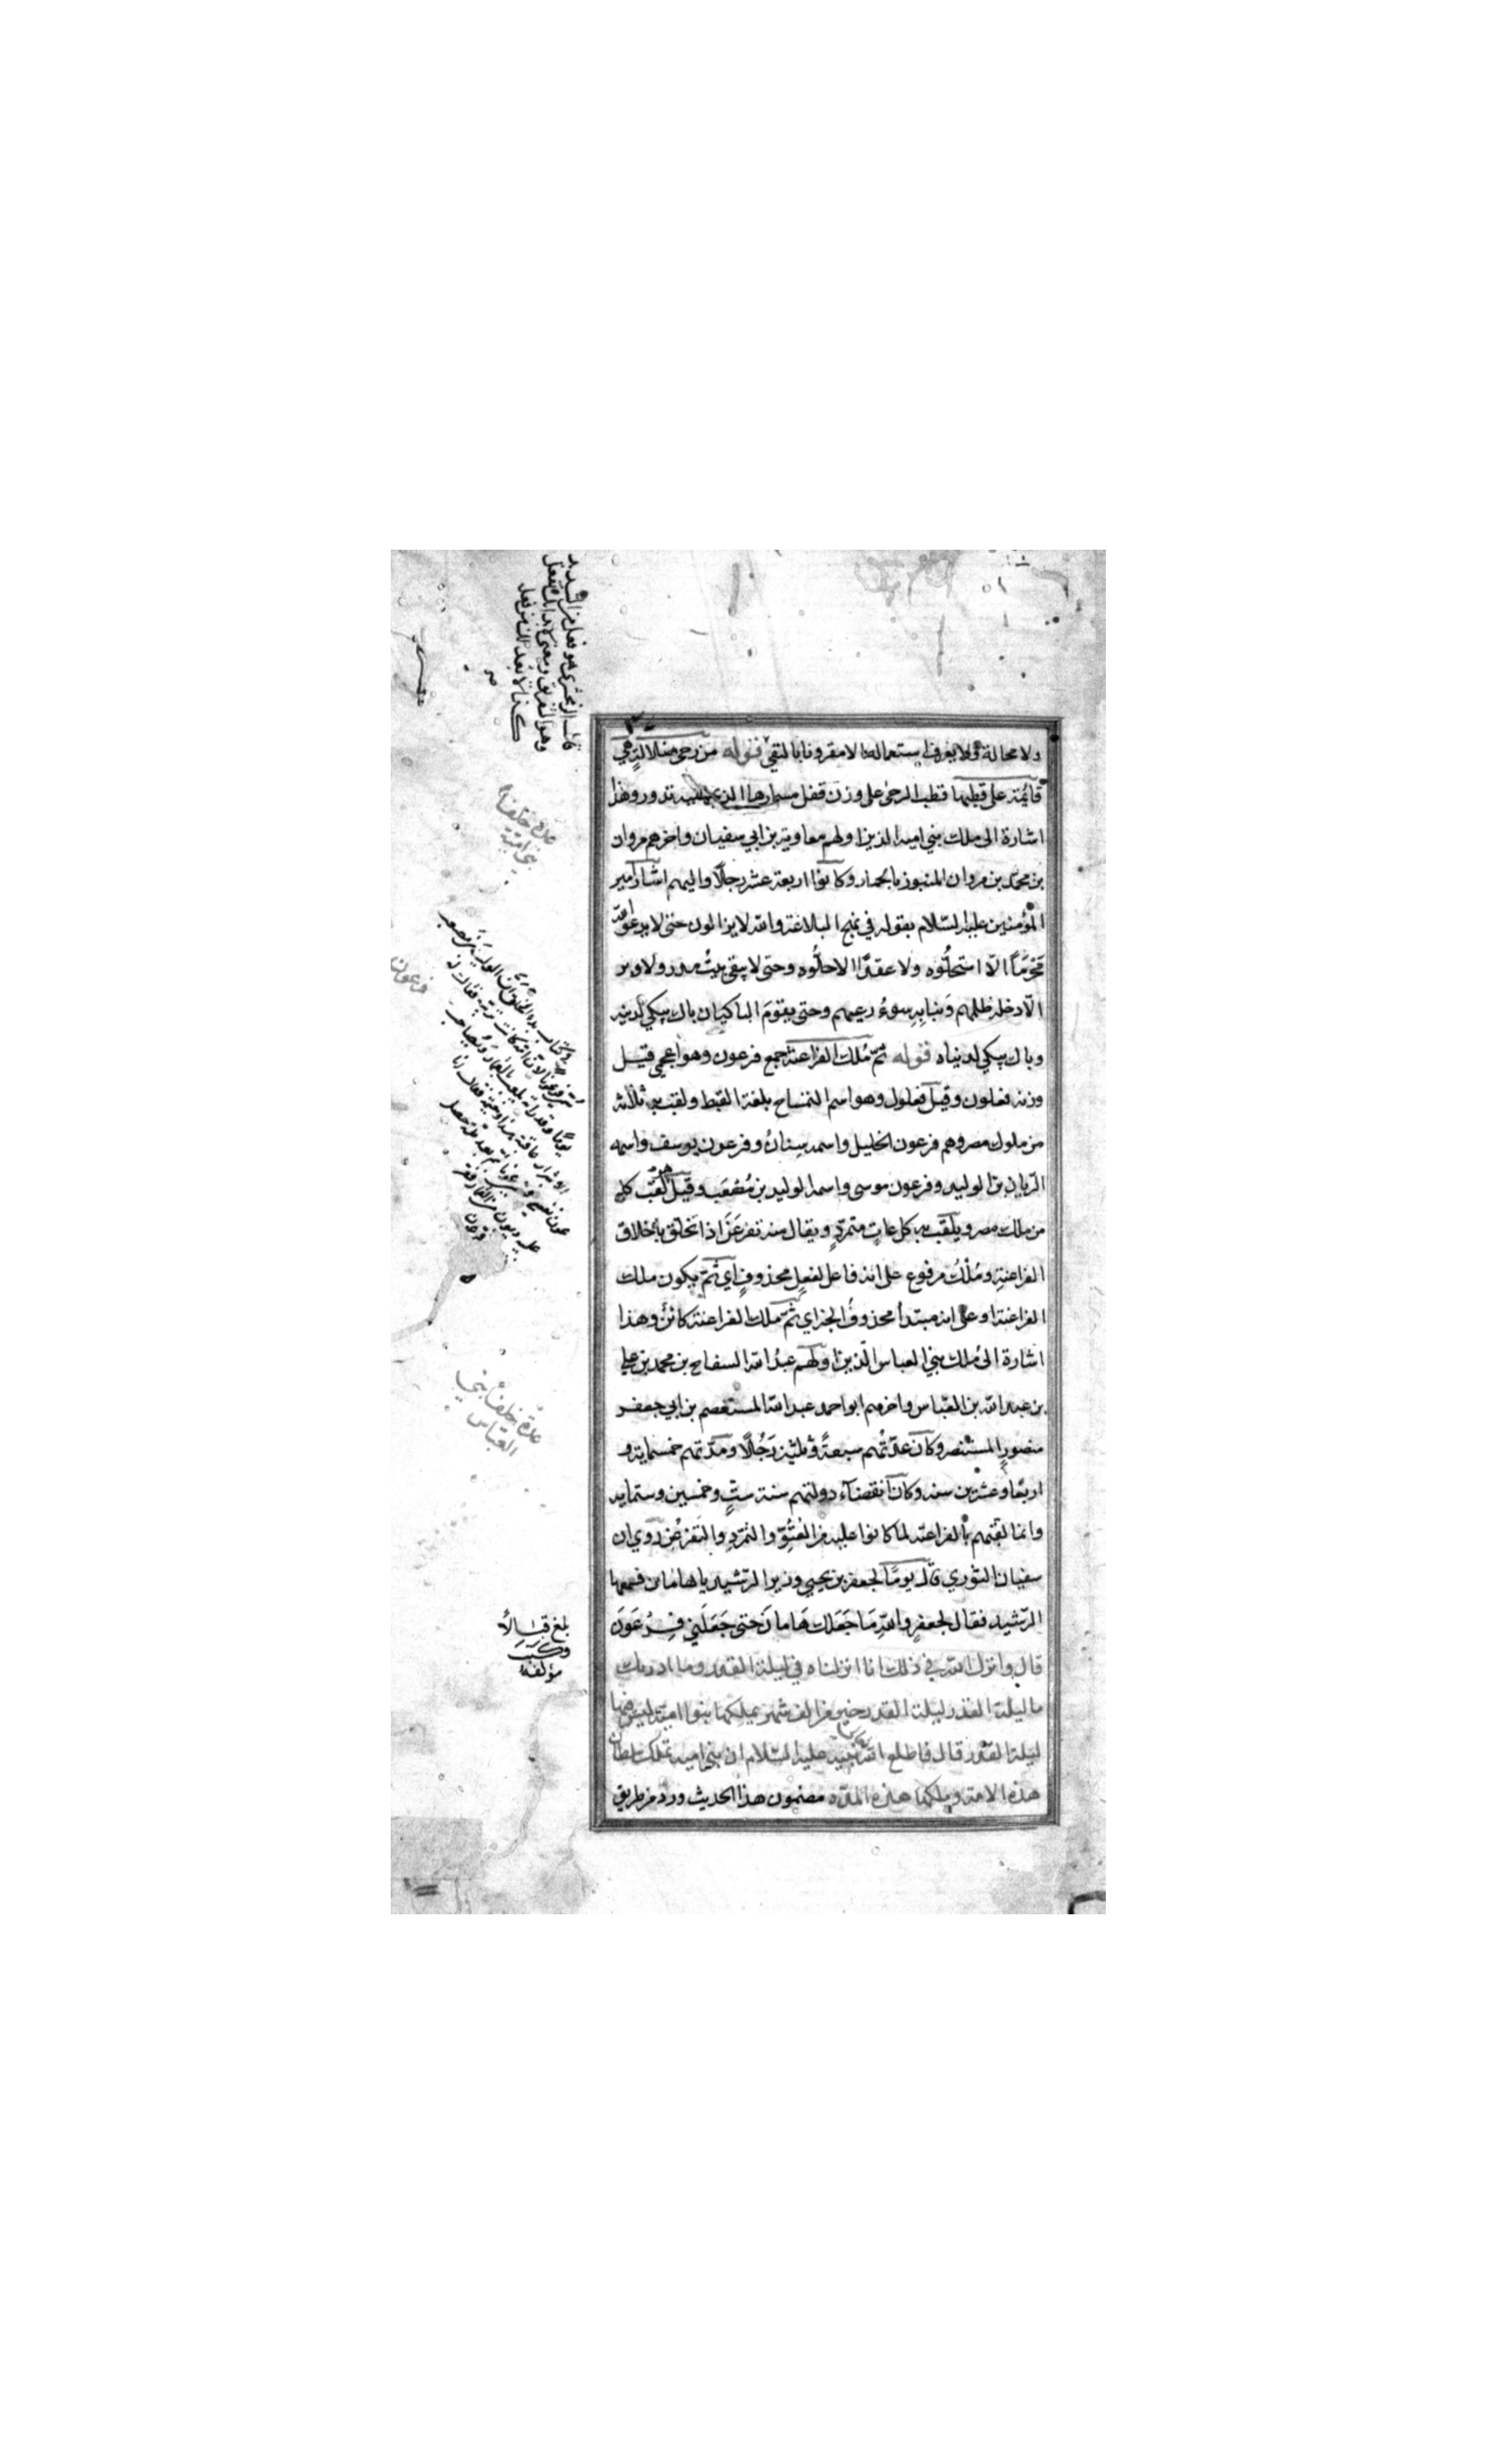 ولا محالة ولا يعرف استعمالها الا مقرونا بالنفي قوله من رحى ضلالة هي
قائمة على قطبها قطب الرحى على وزن قفل مسمارها الذي عليه تدور وهذا
اشارة الى ملك بني امية الذين اولهم معاوية بن ابي سفيان واخرهم مروان
بن محمد بن مروان المنبوز بالحمار وكانوا اربعة عشر رجلا واليهم اشار امير
المؤمنين عليه السلام بقوله في نهج البلاغة والله لا يزالون حتى لا يدعوا لله
محرّماً الّا استحلّوه ولا عقدًا الا حلّوه وحتى لا يبقى بيتُ مدر ولا وبر
الّا دخله ظلمهم ونبا به سوءُ رعيهم وحتى يقومَ الباكيان باك يبكي لدينه
وباك يبكي لدنياه قوله ثمّ مُلك الفراعنة جمع فرعون وهو اعجمي قيل
وزنه فعلون وقيل فعلول وهو اسم التمساح بلغة القبط ولقب به ثلاثة
من ملوك مصر وهم فرعون الخليل واسمه سنانُ وفرعون يوسف واسمه
الريان بن الوليد وفرعون موسى واسمه الوليد بن مُصْعَب وقيل هو لقب كل
من ملك مصر ويلقب به كل عاتٍ متمردٍ ويقال منه تفرعَنَ اذا تخلّق باخلاق
الفراعنةِ ومُلْكُ مرفوع على انه فاعل لفعلٍ محذوفٍ اي ثمّ يكون ملك
الفراعنة او على انه مبتدأ محذوفُ الخبر اي ثمّ ملك الفراعنة كائنٌ وهذا
اشارة الى ملك بني العباس الذين اولهم عبدُ الله السفاح بن محمد بن علي
بن عبد الله بن العبّاس واخرهم ابو احمد عبد الله المستعصم بن ابي جعفر
منصورٍ المستنصر وكان عدّتُهم سبعةً وثلثين رَجُلًا ومدّتهم خمسماية و
اربعًا وعشرين سنه وكان انقضآء دولتهم سنة ستٍّ وخمسين وستمايه
وانما لقبهم بالفراعنة لما كانوا عليه من العُتُوّ والتمرّدِ والتفرعُن روي ان
سفيان الثوري قال يومًا لجعفر بن يحيى وزير الرشيد يا هامان فسمعها
الرّشيد فقال لجعفرٍ واللهِ مَا جَعَلك هَامانَ حتى جَعَلَني فِرْعَونَ
قال وانزل الله في ذلك انا انزلناه في ليلة القدر وما ادريك
ما ليلة القدر ليلة القدر خير من الف شهر يملكها بنو امية ليس فيها
ليلة القدر قال فاطلع الله نبيه عليه السلام ان بني اميه تملك سلطان
هذه الامة وملكها هذه المدّه مضمون هذا الحديث ورد من طريق
عدة خلفاء
بني امية
فرعون
عدّة خلفاء بني
العبّاس
بلغ قبالًا
وكتب
مؤلفه